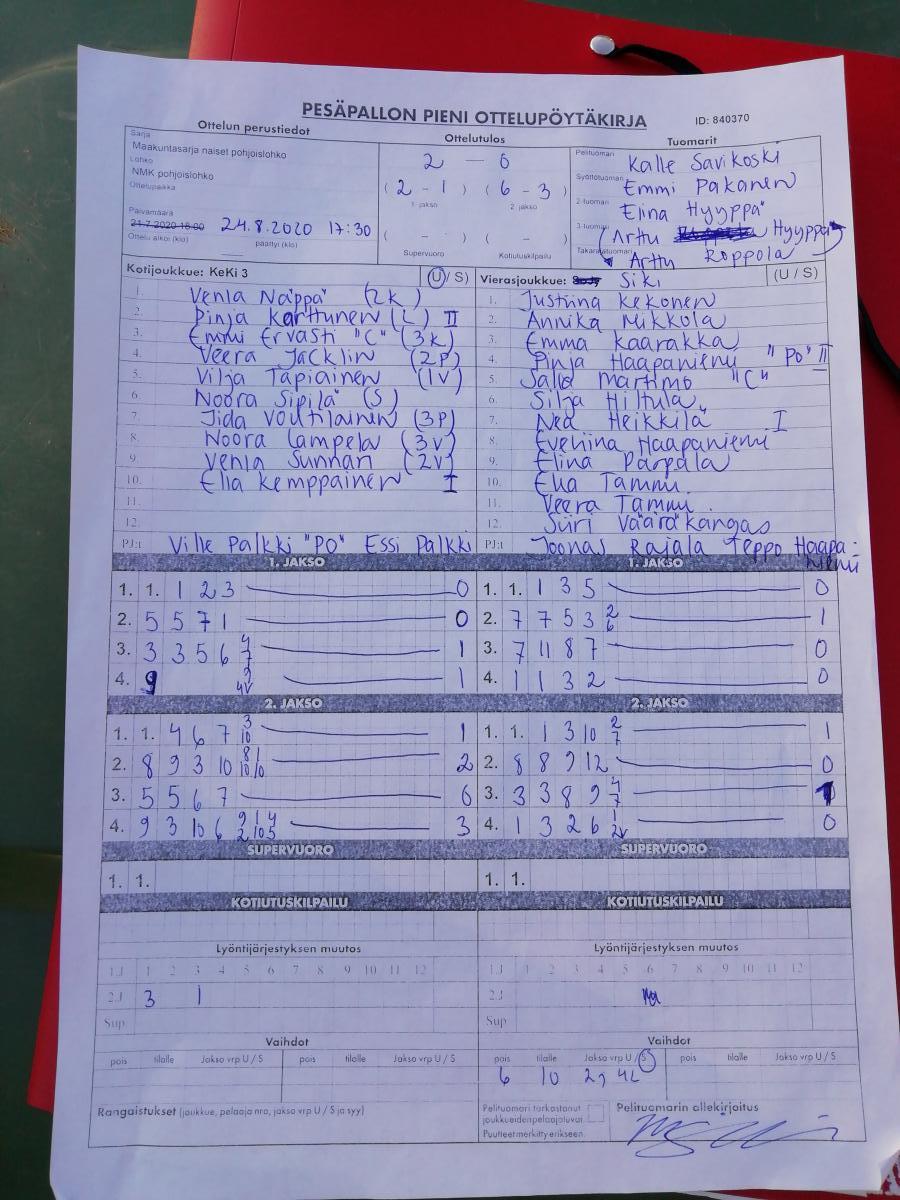 PESÄPALLON PIENI OTTELUPÖYTÄKIRJA ID: 840370
Ottelun perustiedot Ottelutulos Tuomarit
Sarja
Maakuntasarja naiset pohjoislohko
Lohko
NMK pohjoislohko
Ottelupaikka
Päivämäärä
21.7.2020 18:00 24.8.2020 17:30
Ottelu alkoi (klo) päättyi (klo)
2 - 0
(2 - 1) (6 - 3)
1. jakso 2. jakso
( - ) ( - )
Supervuoro Kotiutuskilpailu
Pelituomari Kalle Savikoski
Syöttötuomari Emmi Pakanen
2-tuomari Elina Hyyppä
3-tuomari (Arttu Hyyppä)
Takarajatuomari Arttu Roppola
Kotijoukkue: KeKi 3 (U / S) Vierasjoukkue: SiKi (U / S)
1. Venla Näppä (2k) 1. Justiina Kekonen
2. Pinja Karttunen (L) II 2. Annika Mikkola
3. Emmi Ervasti "C" (3k) 3. Emma Kaarakka
4. Veera Jacklin (2P) 4. Pinja Haapaniemi "PO" II
5. Vilja Tapiainen (1V) 5. Salla Martimo "C"
6. Noora Sipilä (S) 6. Silja Hiltula
7. Iida Voutilainen (3P) 7. Nea Heikkilä I
8. Noora Lampela (3V) 8. Eveliina Haapaniemi
9. Venla Sunnari (2V) 9. Elina Parpala
10. Ella Kemppainen I 10. Ella Tammi
11. 11. Veera Tammi
12. 12. Siiri Vääräkangas
PJ:t Ville Palkki "PO" Essi Palkki PJ:t Joonas Rajala Teppo Haapaniemi
1. JAKSO 1. JAKSO
1. 1. 1 2 3 0 1. 1. 1 3 5 0
2. 5 5 7 1 0 2. 7 7 5 3 2 6 1
3. 3 3 5 6 4 7 1 3. 7 11 8 7 0
4. 9 9 4V 1 4. 1 1 3 2 0
2. JAKSO 2. JAKSO
1. 1. 4 6 7 3 10 1 1. 1. 1 3 10 2 7 1
2. 8 9 3 10 2 2. 8 8 9 12 0
3. 5 5 6 7 0 3. 3 3 8 9 4 7 1
4. 9 3 10 6 9 1 4 2 10 5 3 4. 1 3 2 6 1 2V 0
SUPERVUORO SUPERVUORO
1. 1. 1. 1.
KOTIUTUSKILPAILU KOTIUTUSKILPAILU
Lyöntijärjestyksen muutos Lyöntijärjestyksen muutos
1.J 1 2 3 4 5 6 7 8 9 10 11 12 1.J 1 2 3 4 5 6 7 8 9 10 11 12
2.J 3 1 2.J
Sup Sup
Vaihdot Vaihdot
pois tilalle Jakso vrp U / S pois tilalle Jakso vrp U / S pois tilalle Jakso vrp U / S pois tilalle Jakso vrp U / S
6 10 2j 4L
Rangaistukset (joukkue, pelaaja nro, jakso vrp U / S ja syy)
Pelituomari tarkastanut
joukkueiden pelaajaluvat.
Puutteet merkitty erikseen.
Pelituomarin allekirjoitus